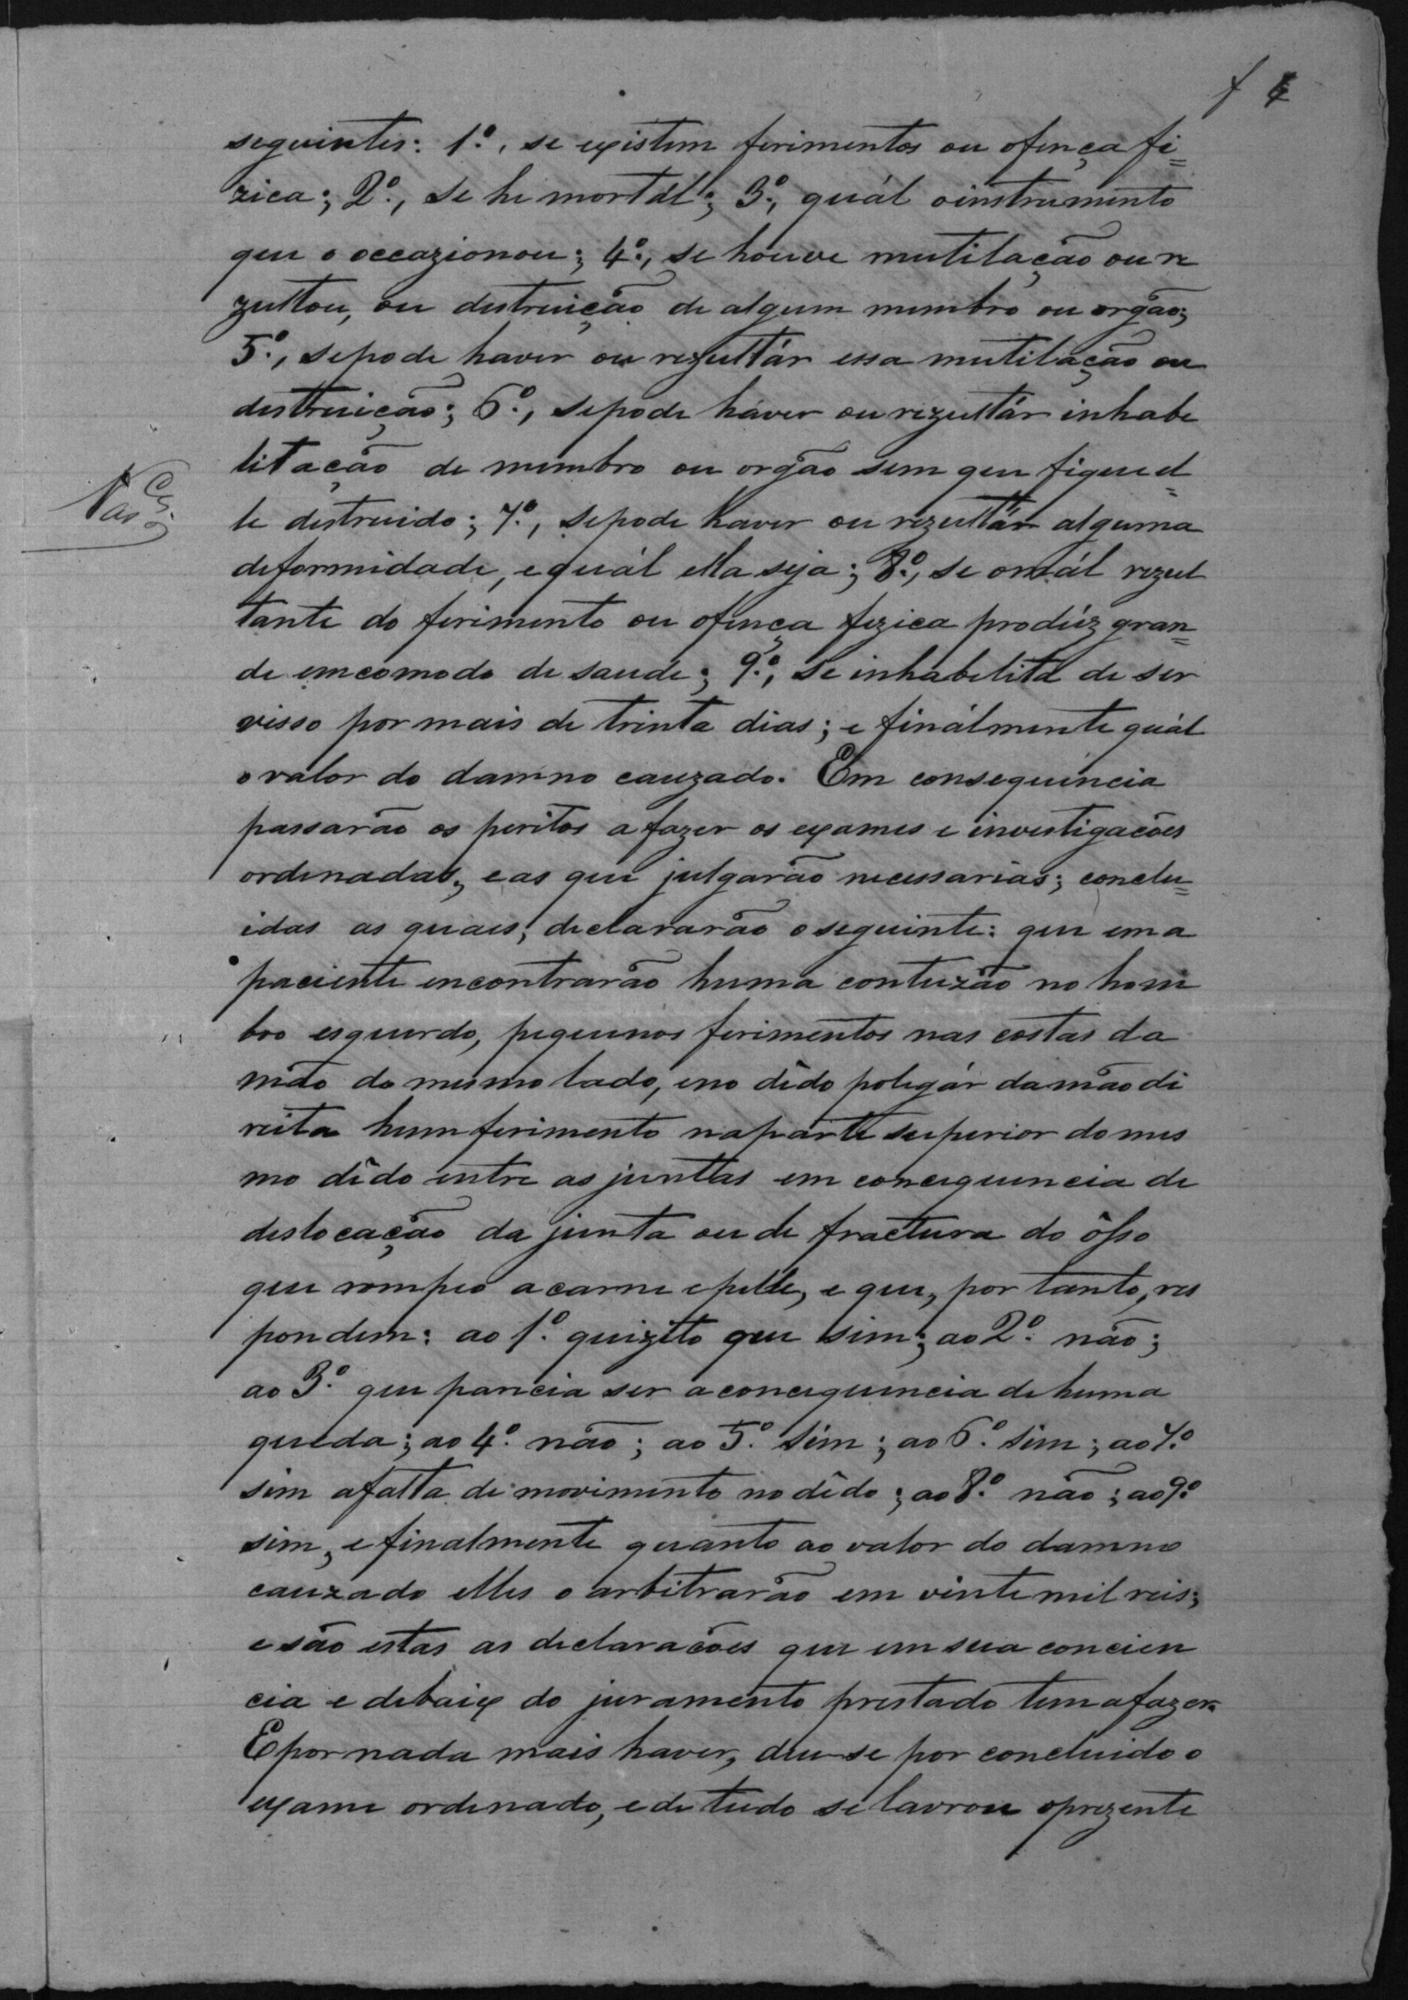 f 6
seguintes: 1º, se existem ferimentos ou ofença fi=
zica; 2º, se he mortál; 3º, quál oinstrumento
que o occazionou; 4º, se houve mutilação ou re
zultou, ou destruição de algum membro ou orgão;
5º, sepode haver ou rezultár essa mutilação ou
destruição; 6º, sepode háver ou rezultár inhabe
litação de membro ou orgão sem que fique el=
le destruido; 7º, sepode haver ou rezultár alguma
deformidade, equál ella seja; 8º, se omál rezul
tante do ferimento ou ofença fezica prodúz gran=
de emcomodo de saude; 9º, se inhabelita de ser
visso por mais de trinta dias; e finálmente quál
o valor do damno cauzado. Em consequencia
passarão os peritos a fazer os exames e investigações
ordenadas, e as que julgarão necessarias; conclu=
idas as quaes, declararão oseguinte: que em a
paciente encontrarão huma contuzão no hom
bro esquerdo, pequenos ferimentos nas costas da
mão do mesmo lado, eno dêdo polegár damão di
reita hum ferimento naparte superior do mes
mo dêdo entre as juntas em concequencia de
deslocação da junta ou de fractura do ôsso
que rompeo acarne epelle, e que, por tanto, res
pondem: ao 1º quizito que sim; ao 2º não;
ao 3º que parecia ser aconcequencia de huma
queda; ao 4º não; ao 5º sim; ao 6º sim; ao 7º
sim afalta de movimento no dêdo; ao 8º não; ao 9º
sim, e finalmente quanto ao valor do damno
cauzado elles o arbitrarão em vinte mil reis;
e são estas as declarações que em sua concien
cia e debaix do juramento prestado tem afazer.
E por nada mais haver, deu-se por concluido o
exame ordenado, ede tudo se lavrou oprezente